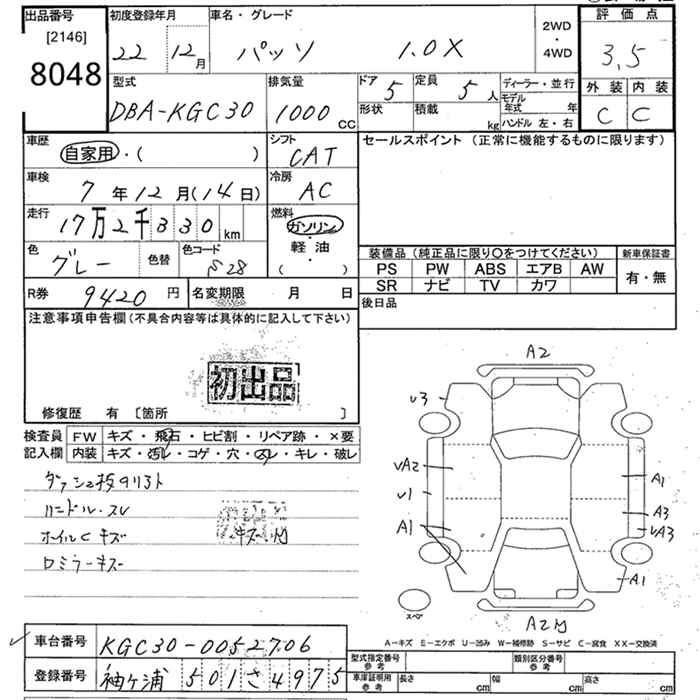 出品番号 [2146] 8048
初度登録年月 22 12月
車名・グレード パッソ 1.0X
2WD・4WD
評価点 3.5
外装 内装
C C
型式 DBA-KGC30
排気量 1000 CC
ドア 5 定員 5人
形状 積載 kg
ディーラー・並行
モデル年式 年
ハンドル 左・右
車歴 自家用・( )
シフト CAT
セールスポイント (正常に機能するものに限ります)
車検 7年12月(14日)
冷房 AC
走行 17万2千330km
燃料 ガソリン・軽油・( )
色 グレー 色替 色コード S28
装備品 (純正品に限り〇をつけてください) 新車保証書
PS PW ABS エアB AW 有・無
SR ナビ TV カワ
R券 9420円 名変期限 月 日
後日品
注意事項申告欄(不具合内容等は具体的に記入して下さい)
初出品
修復歴 有 〔箇所 〕
検査員記入欄 FW キズ・飛石・ヒビ割・リペア跡・×要
内装 キズ・汚れ・コゲ・穴・スレ・キレ・破レ
ハンドル・スレ
ホイルC キズ
ロミラーキズ
A2
U3
UA2
U1
A1
A1
A3
UA3
A1
スペア
A2
A-キズ E-エクボ U-凹み W-補修跡 S-サビ C-腐食 XX-交換済
車台番号 KGC30-0052706
登録番号 袖ヶ浦 501 さ 4975
型式指定番号 参考 類別区分番号 参考
車庫証明用 参考 長さ cm 幅 cm 高さ cm